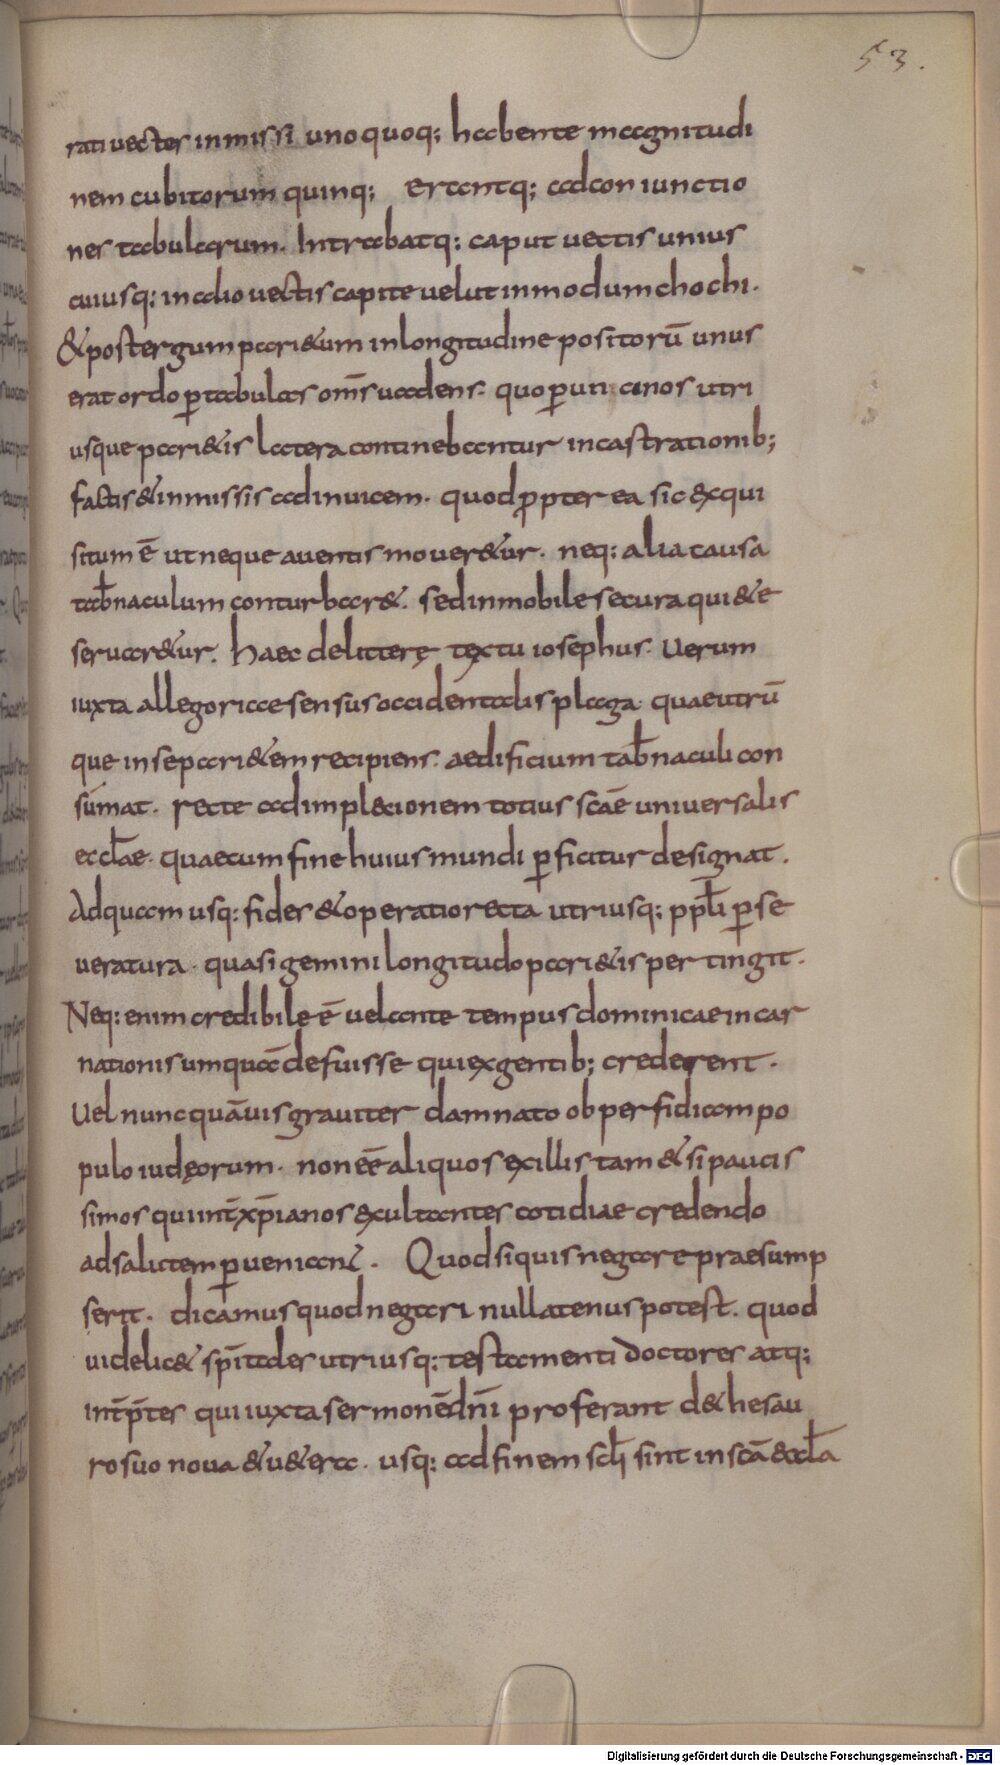 53.
rati vectes inmissi unoquoq; habente magnitudi
nem cubitorum quinq; Erantq; ad coniunctio
nes tabularum. Intrabatq; caput vectis unius
cuiusq; in alio vectis capite velut in modum chochi.
& post ergum pari&um in longitudine positorū unus
erat ordo ꝑ tabulas om̄s vadens. quo ꝑ uncinos utri
usque pari&is latera continebantur incastrationib;
factis & inmissis ad invicem. quod ꝓpter ea sic exqui
situm ē ut neque a ventis mover&ur. neq; alia causa
tab̄naculum conturbar&. sed inmobile secura qui&e
servar&ur. haec de litterę textu iosephus. Verum
iuxta allegoriae sensus occidentalis plaga quae utrū
que in se pari&em recipiens. aedificium tab̄naculi con
sūmat. recte ad impl&ionem totius scāe universalis
eccl̄ae. quae cum fine huius mundi ꝑficitur designat.
Ad quam usq; fides & operatio recta utriusq; ppl̄i ꝑse
veratura. quasi gemini longitudo pari&is pertingit.
Neq; enim credibile ē vel ante tempus dominicae incar
nationis umquā defuisse qui ex gentib; crederent.
Vel nunc quāvis graviter damnato ob perfidiam po
pulo iudęorum. non eē aliquos ex illis tam&si paucis
simos qui int̄ xp̄ianos exultantes cotidiae credendo
ad salutem ꝑveniant. Quod si quis negare praesump
serit. dicamus quod negari nullatenus potest. quod
videlic& sp̄itales utriusq; testamenti doctores atq;
int̄p̄tes qui iuxta sermonē dn̄i proferant de thesau
ro suo nova & v&era. usq; ad finem scl̄i sint in scā eccl̄a
Digitalisierung gefördert durch die Deutsche Forschungsgemeinschaft - DFG